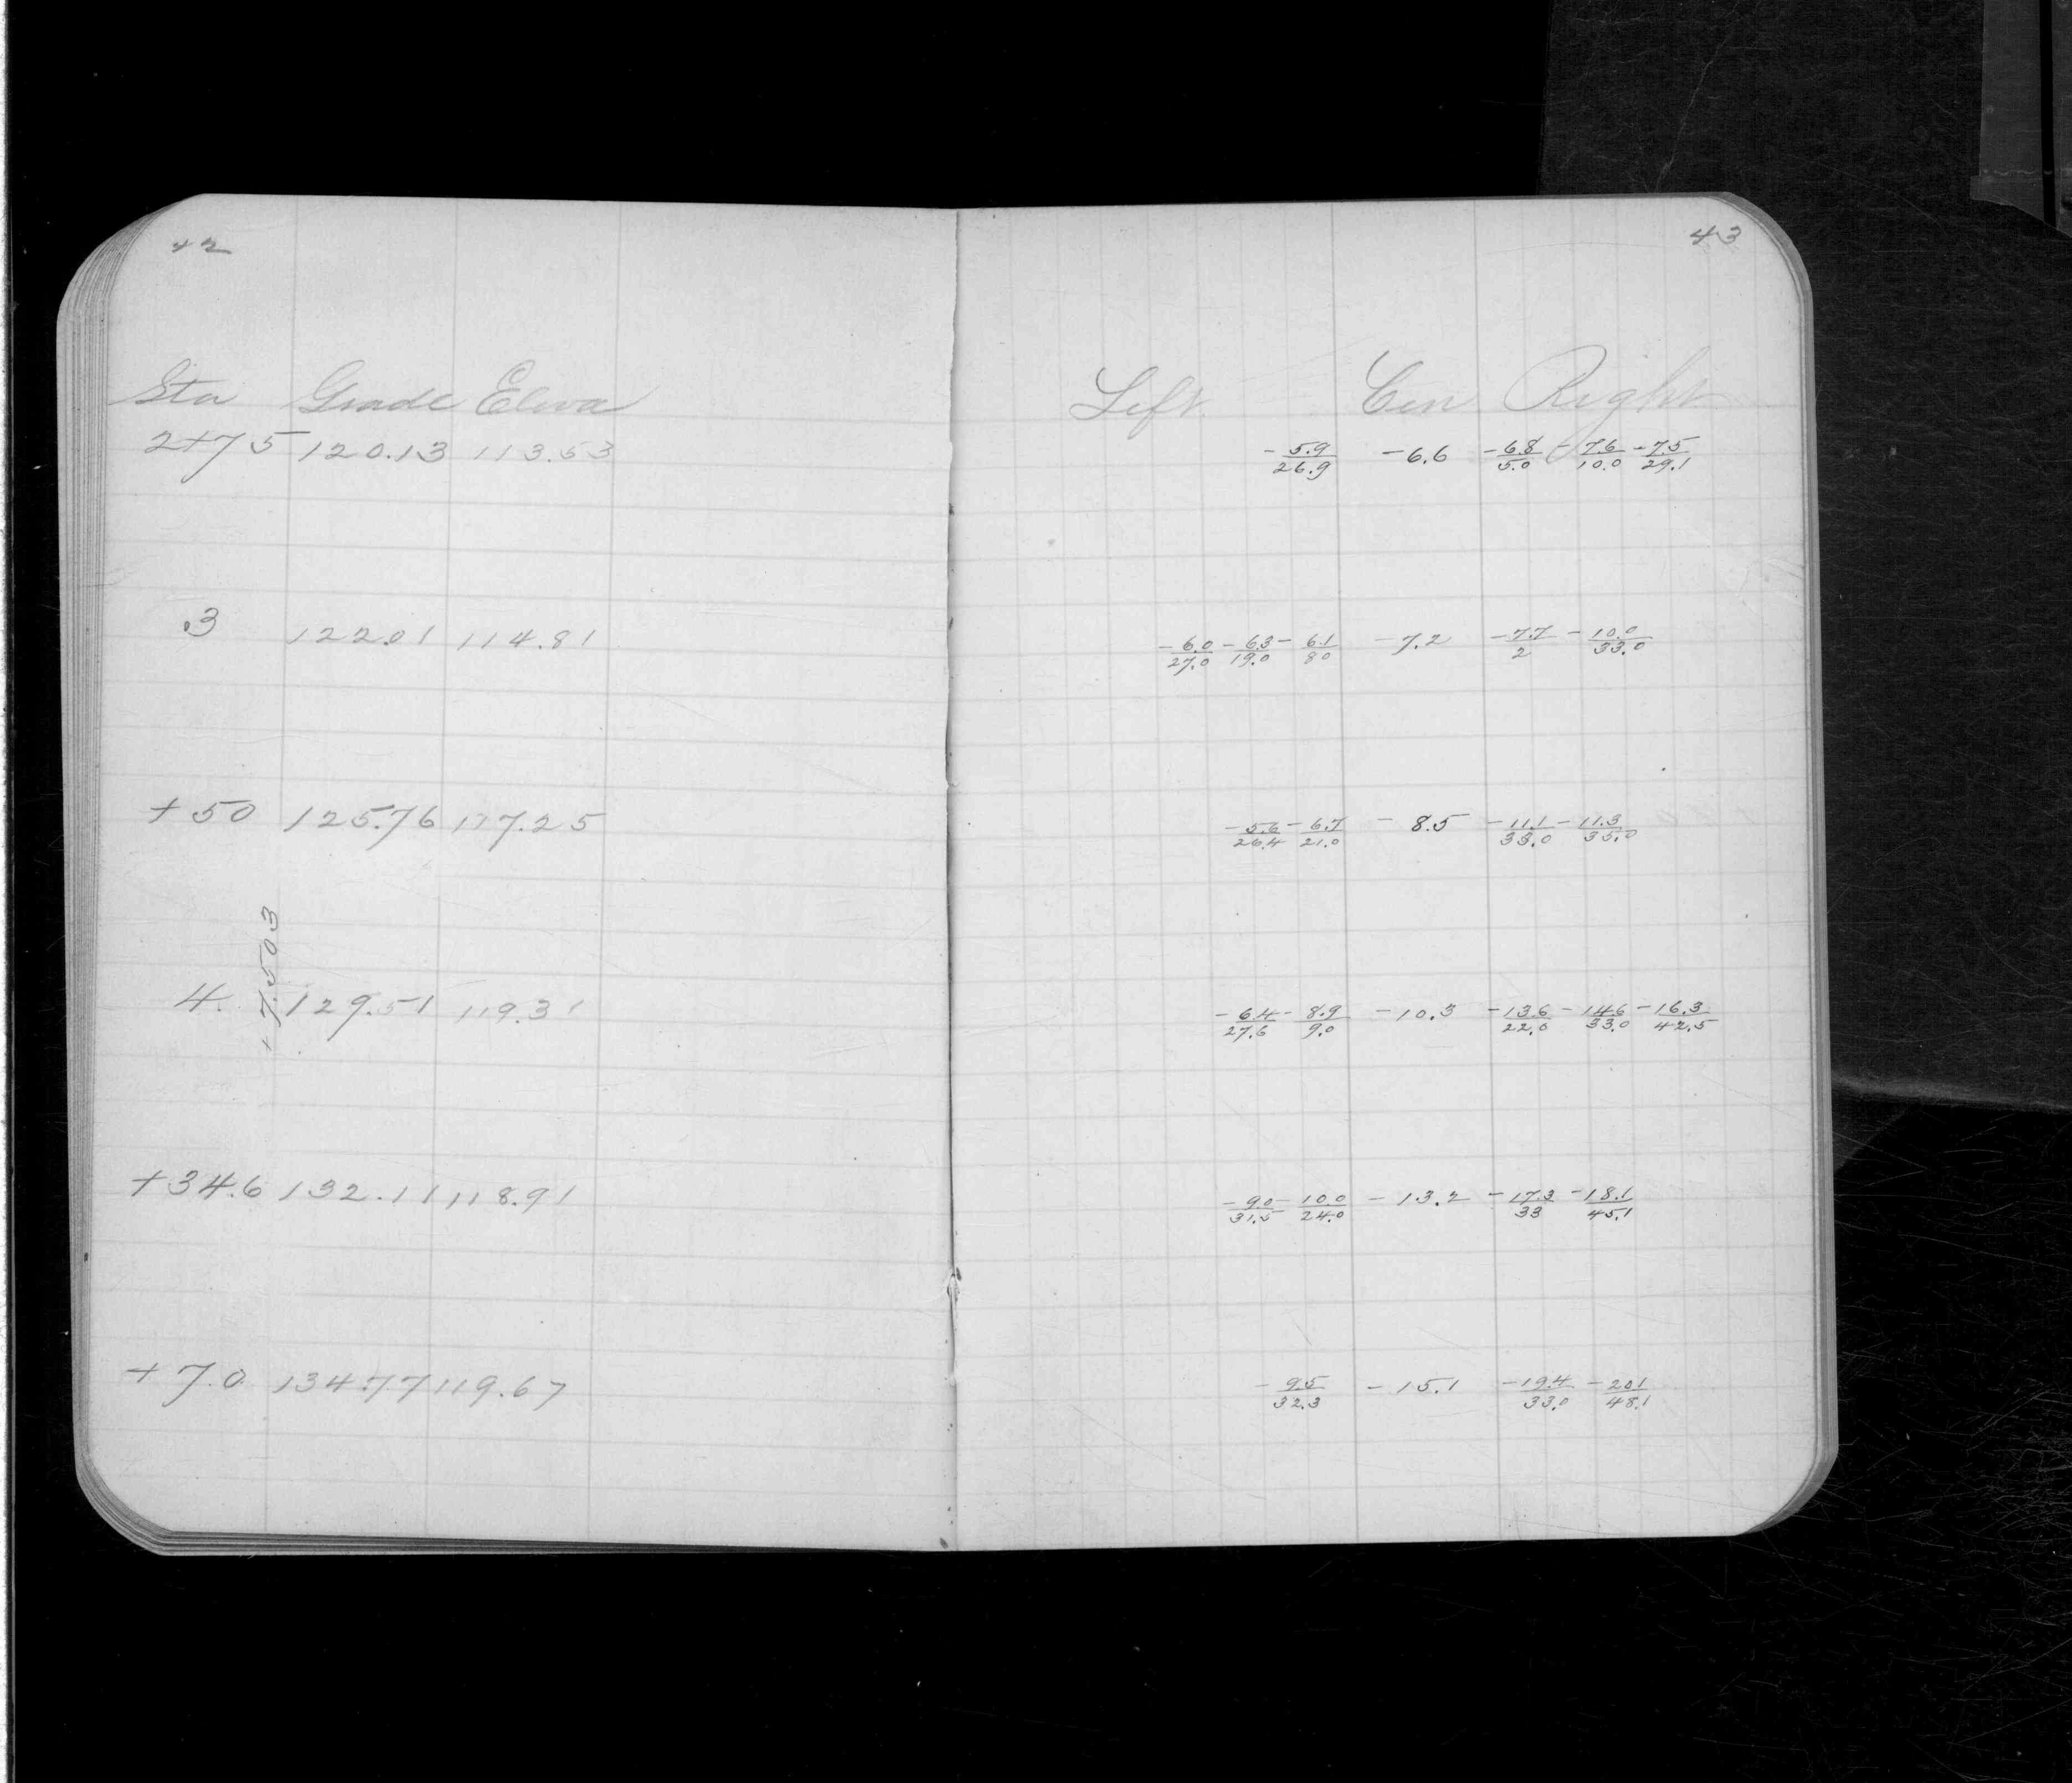 42
43
Sta Grade Eleva
Left Cen Right
2+75 120.13 113.53
-5.9/26.9 -6.6 -6.8/5.0 -7.6/10.0 -7.5/29.1
3 122.01 114.81
-6.0/27.0 -6.3/19.0 -6.1/8.0 -7.2 -7.7/2 -10.0/33.0
+50 125.76 117.25
-5.6/26.4 -6.7/21.0 -8.5 -11.1/33.0 -11.3/35.0
+7.503
4. 129.51 119.31
-6.4/27.6 -8.9/9.0 -10.3 -13.6/22.0 -14.6/33.0 -16.3/42.5
+34.6 132.11 118.91
-9.0/31.5 -10.0/24.0 -13.2 -17.3/33 -18.1/45.1
+7.0 134.77 119.67
-9.5/32.3 -15.1 -19.4/33.0 -20.1/48.1